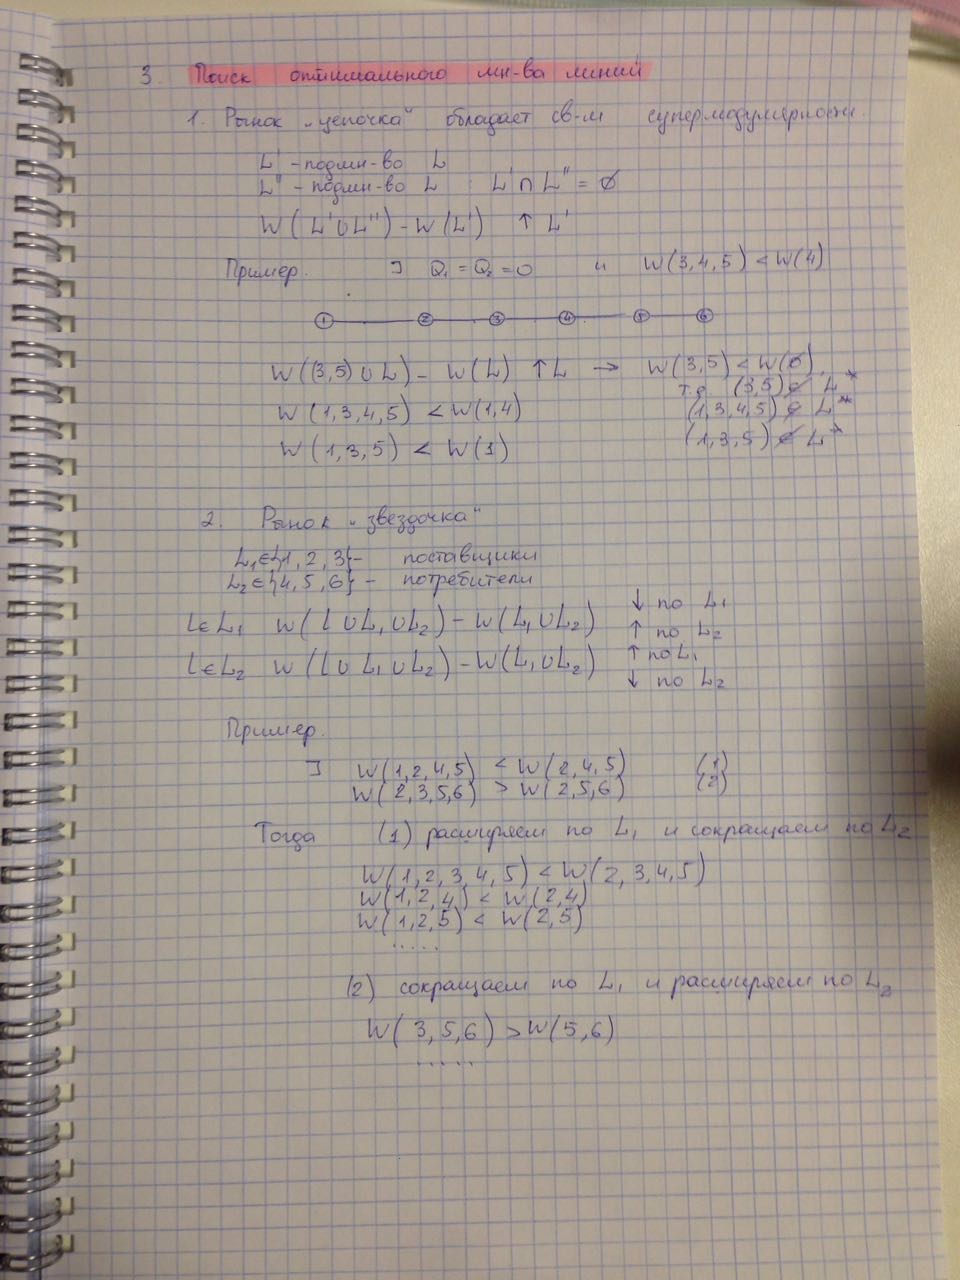 3. Поиск оптимального мн-ва линий
1. Рынок "цепочка" обладает св-м супермодулярности.
L' - подмн-во L
L'' - подмн-во L : L' ∩ L'' = ∅
W(L' ∪ L'') - W(L') ↑ L'
Пример. ∃ Q₁ = Q₂ = 0 и W(3,4,5) < W(4)
1 2 3 4 5 6
W((3,5) ∪ L) - W(L) ↑ L → W(3,5) < W(∅),
т.е (3,5) ∉ L*
W(1,3,4,5) < W(1,4) (1,3,4,5) ∉ L*
W(1,3,5) < W(1) (1,3,5) ∉ L*
2. Рынок "звездочка"
L₁ ∈ {1, 2, 3} - поставщики
L₂ ∈ {4, 5, 6} - потребители
l ∈ L₁ W(l ∪ L₁ ∪ L₂) - W(L₁ ∪ L₂) ↓ по L₁
↑ по L₂
l ∈ L₂ W(l ∪ L₁ ∪ L₂) - W(L₁ ∪ L₂) ↑ по L₁
↓ по L₂
Пример.
∃ W(1,2,4,5) < W(2,4,5) (1)
W(2,3,5,6) > W(2,5,6) (2)
Тогда (1) расширяем по L₁ и сокращаем по L₂
W(1,2,3,4,5) < W(2,3,4,5)
W(1,2,4) < W(2,4)
W(1,2,5) < W(2,5)
.....
(2) сокращаем по L₁ и расширяем по L₂
W(3,5,6) > W(5,6)
.....